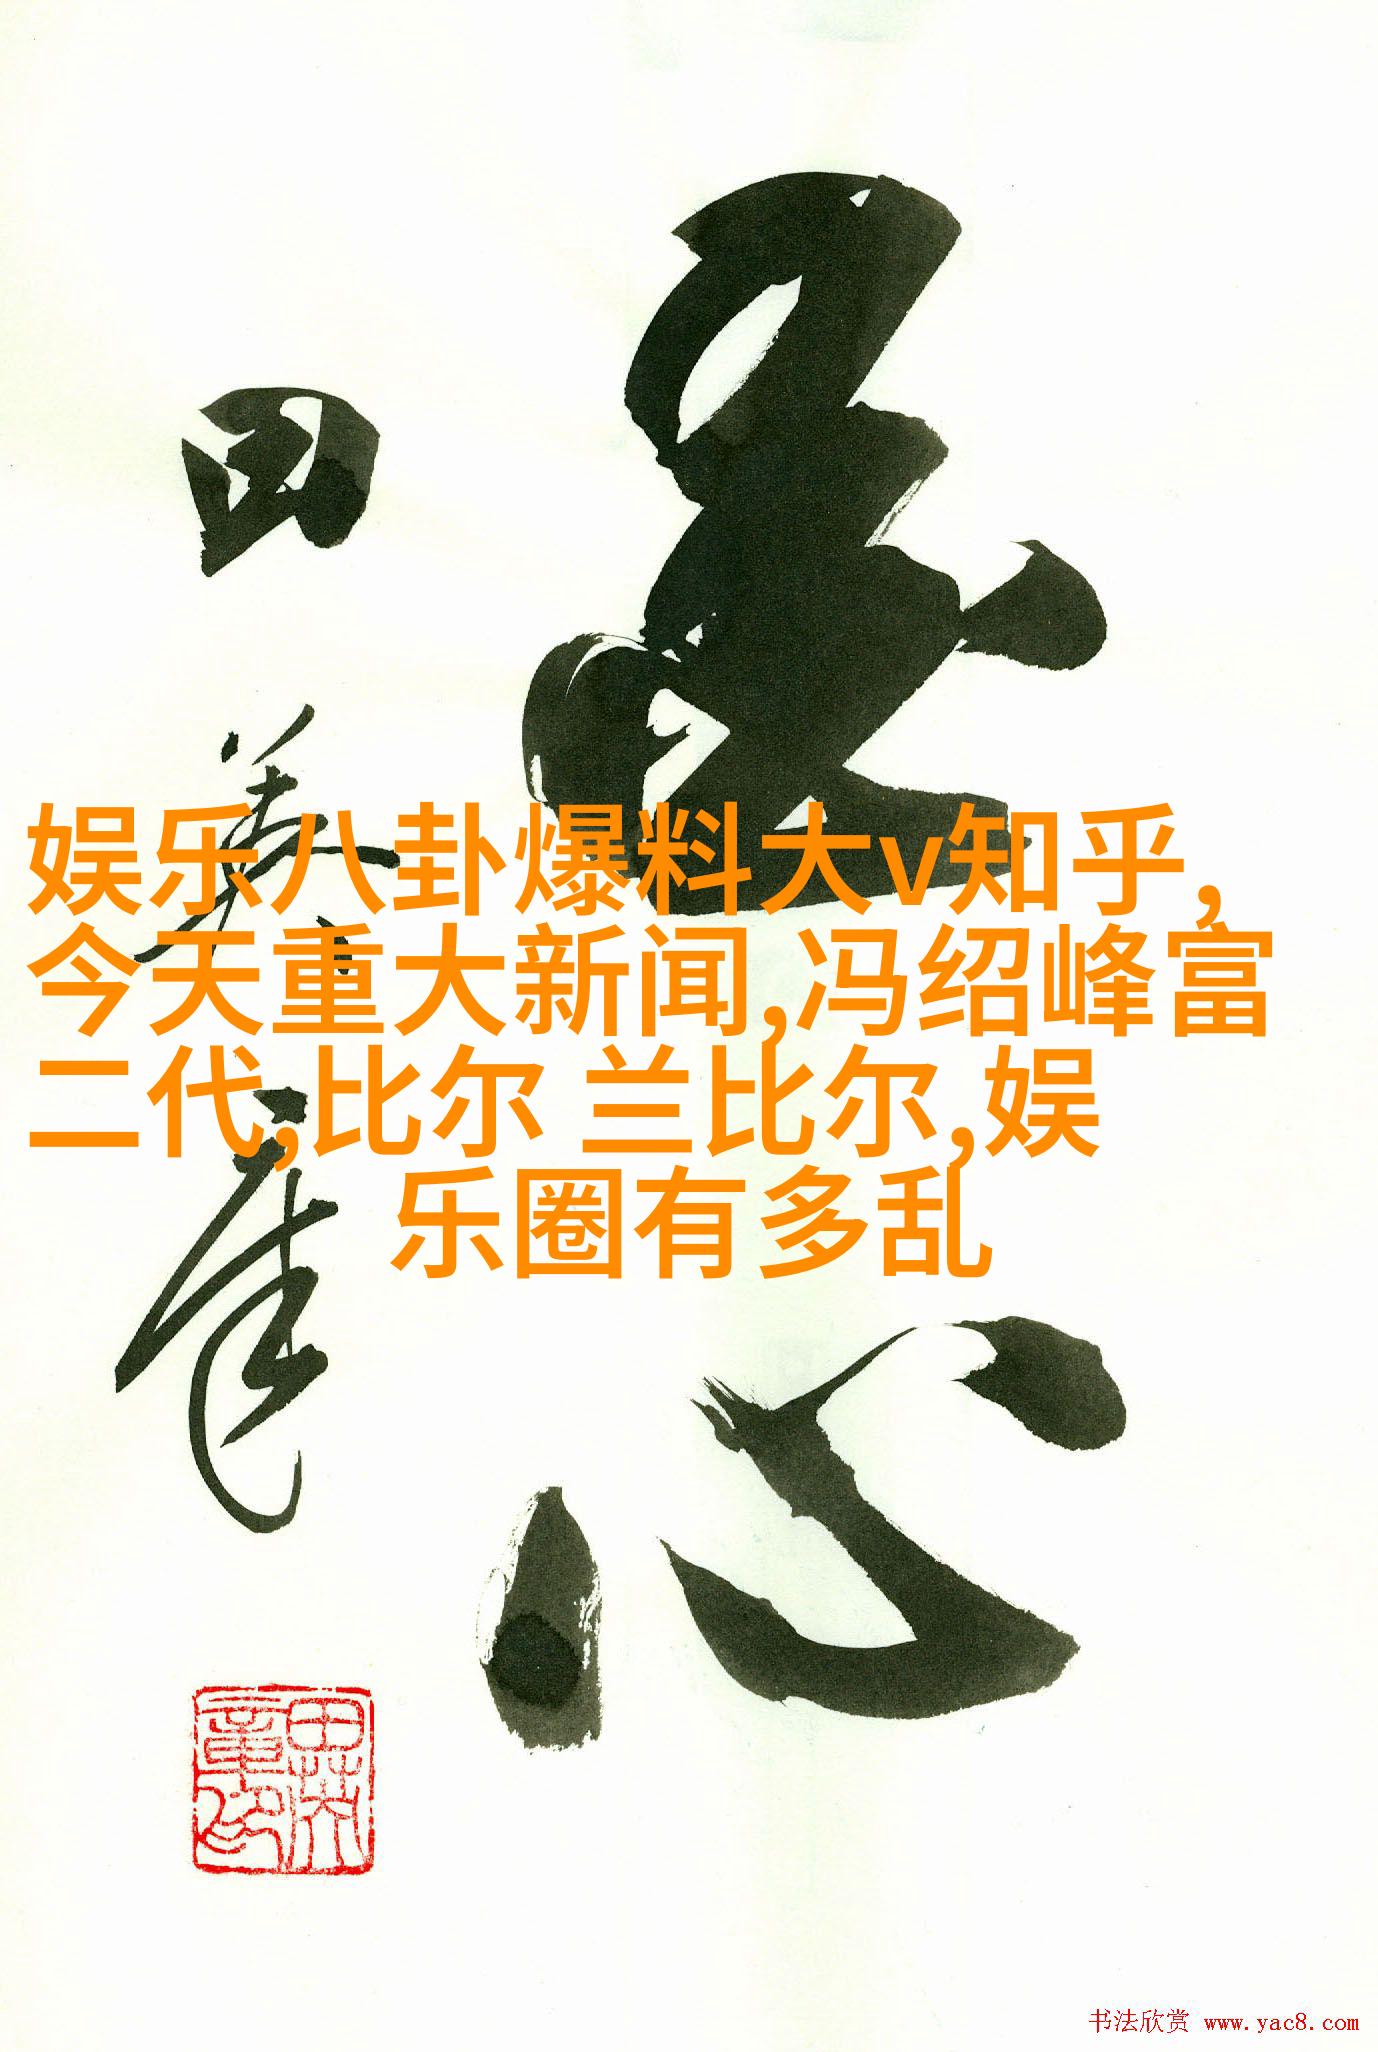 娱乐八卦爆料大v知乎,
今天重大新闻,冯绍峰富
二代,比尔 兰比尔,娱
乐圈有多乱
田
心
书法欣赏 www.yac8.com